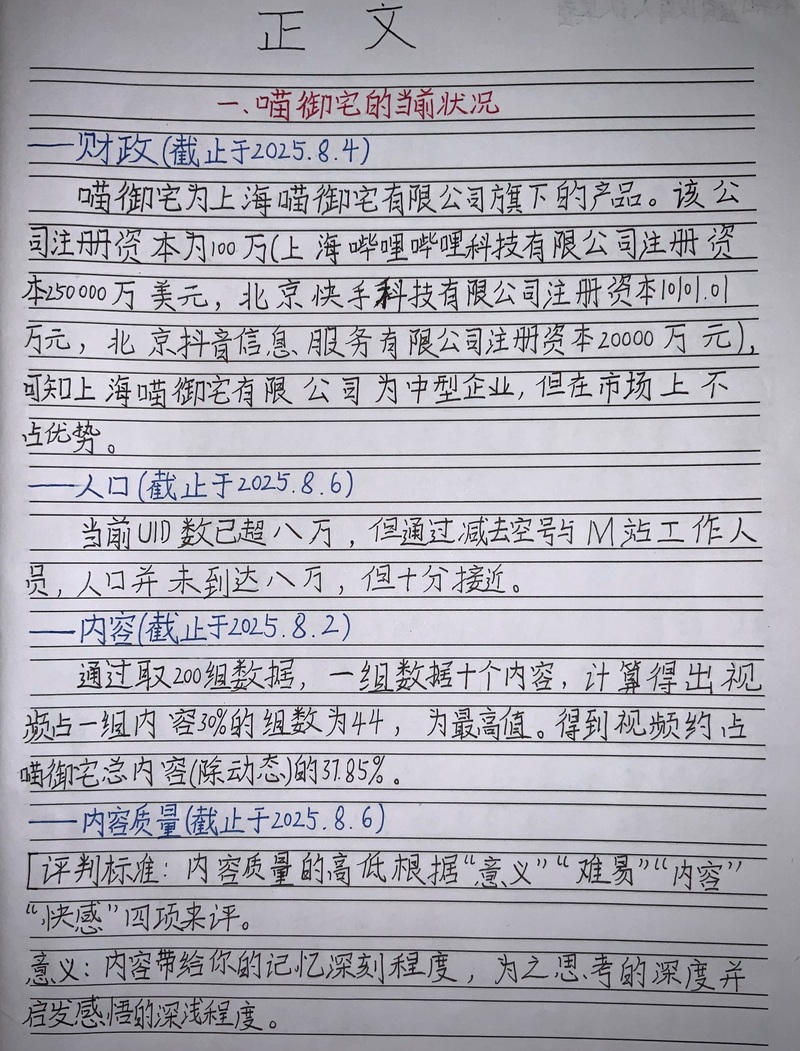 正 文
一、喵御宅的当前状况
——财政(截止于2025.8.4)
喵御宅为上海喵御宅有限公司旗下的产品。该公
司注册资本为100万(上海哔哩哔哩科技有限公司注册资
本250000万美元，北京快手科技有限公司注册资本10101.01
万元，北京抖音信息服务有限公司注册资本20000万元)，
可知上海喵御宅有限公司为中型企业，但在市场上不
占优势。
——人口(截止于2025.8.6)
当前UID数已超八万，但通过减去空号与M站工作人
员，人口并未到达八万，但十分接近。
——内容(截止于2025.8.2)
通过取200组数据，一组数据十个内容，计算得出视
频占一组内容30%的组数为44，为最高值。得到视频约占
喵御宅总内容(除动态)的37.85%。
——内容质量(截止于2025.8.6)
[评判标准：内容质量的高低根据“意义”“难易”“内容”
“快感”四项来评。
意义：内容带给你的记忆深刻程度，为之思考的深度并
启发感悟的深浅程度。